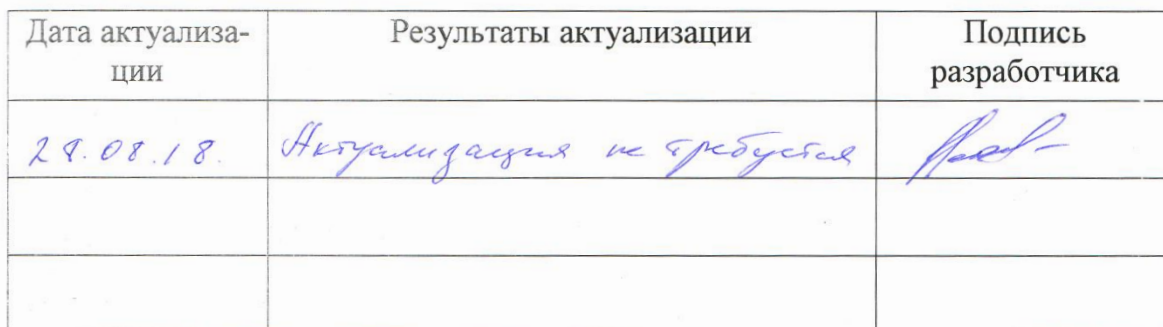 Дата актуализа- Результаты актуализации Подпись
ции разработчика
28.08.18. Актуализация не требуется